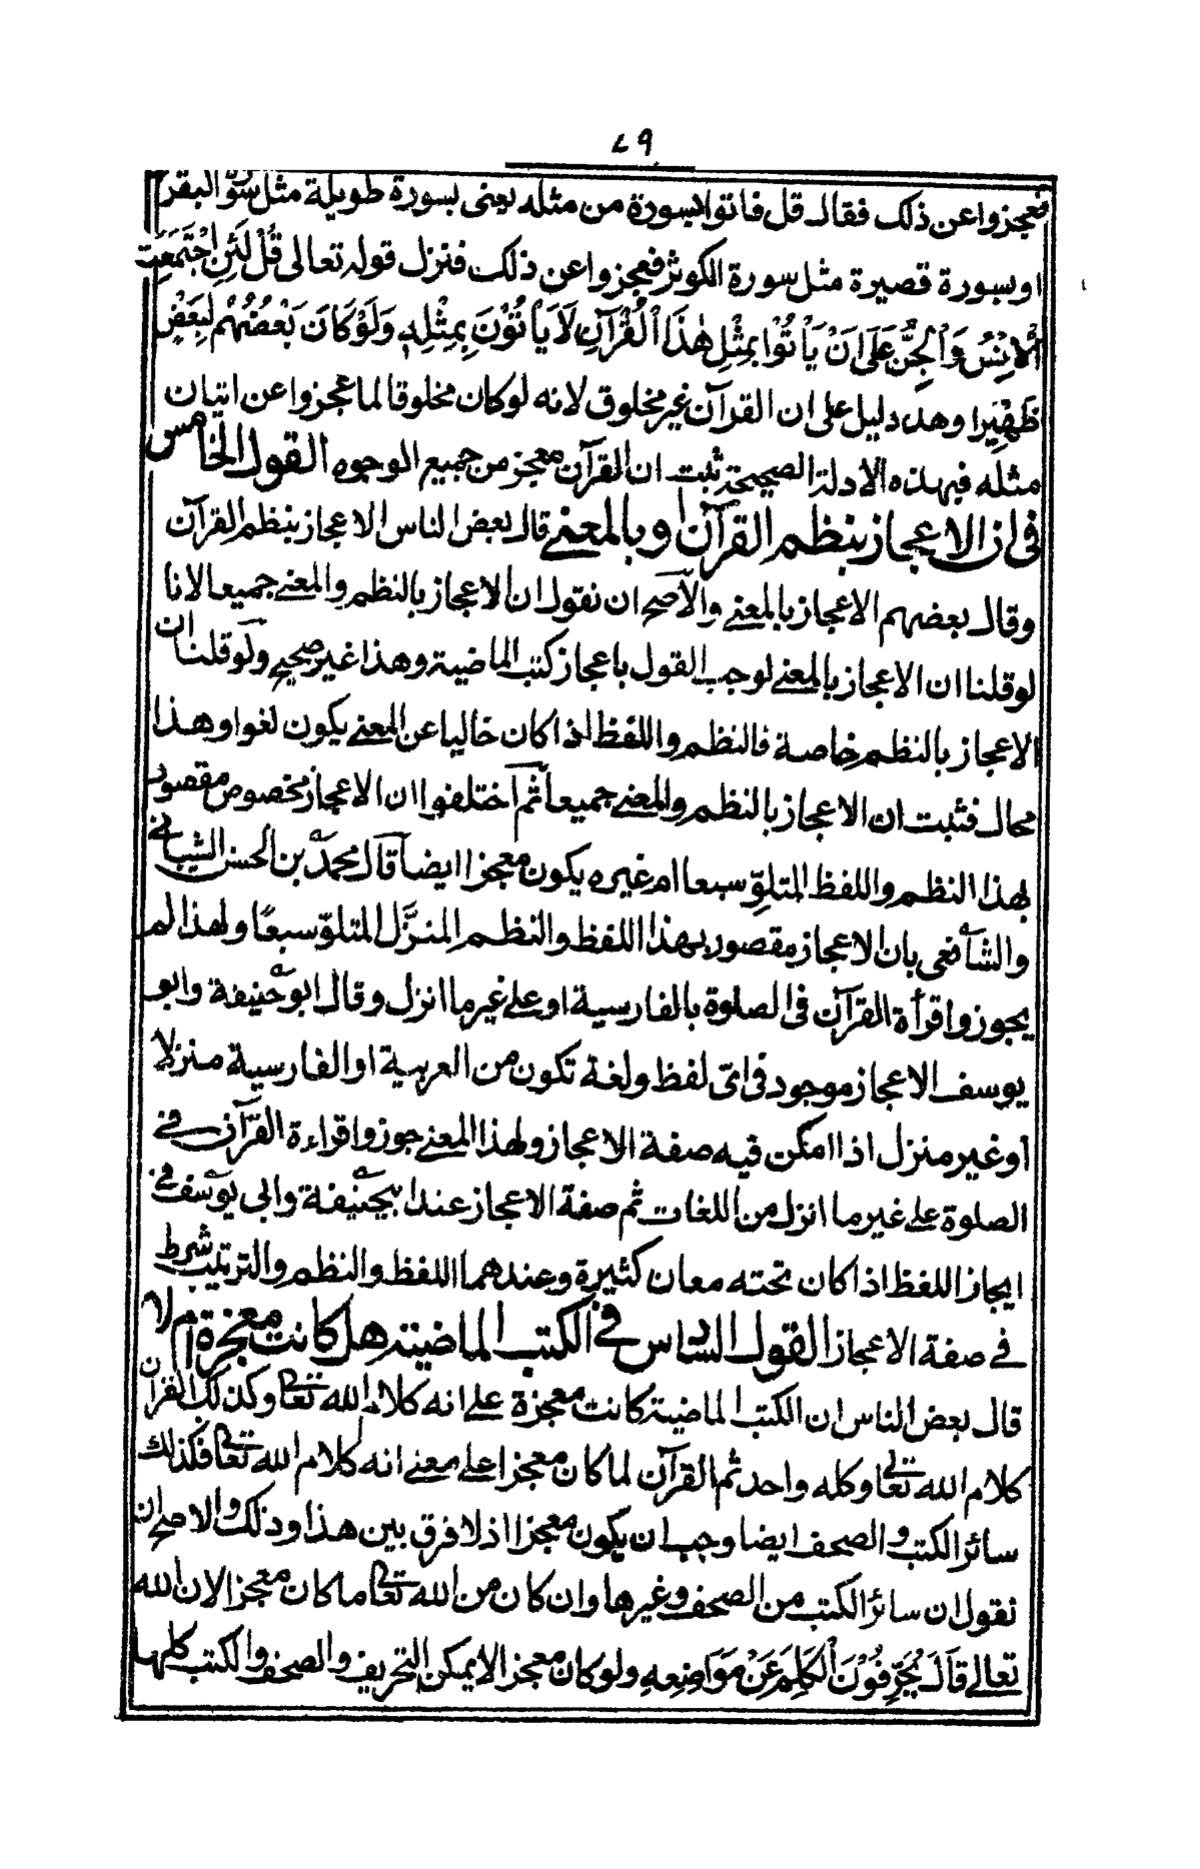 ٧٩
فعجزوا عن ذلك فقال قل فاتوا بسورة من مثله يعنى بسورة طويلة مثل سورة البقر
او بسورة قصيرة مثل سورة الكوثر فعجزوا عن ذلك فنزل قوله تعالى قُلْ لَئِنِ اجْتَمَعَتِ
الْاِنْسُ وَالْجِنُّ عَلَى اَنْ يَأْتُوْا بِمِثْلِ هٰذَا الْقُرْآنِ لَا يَأْتُوْنَ بِمِثْلِهٖ وَلَوْ كَانَ بَعْضُهُمْ لِبَعْضٍ
ظَهِيْرًا وهذا دليل على ان القرآن غير مخلوق لانه لو كان مخلوقا لما عجزوا عن اتيان
مثله فبهذه الادلة الصحيحة ثبت ان القرآن معجز من جميع الوجوه القول الخامس
فى ان الاعجاز بنظم القرآن او بالمعنے قال بعض الناس الاعجاز بنظم القرآن
وقال بعضهم الاعجاز بالمعنے والاصح ان نقول ان الاعجاز بالنظم والمعنے جميعا لانا
لو قلنا ان الاعجاز بالمعنے لوجب القول باعجاز كتب الماضية وهذا غير صحيح ولو قلنا ان
الاعجاز بالنظم خاصة فالنظم واللفظ اذا كان خاليا عن المعنے يكون لغوا وهذا
محال فثبت ان الاعجاز بالنظم والمعنے جميعا ثم اختلفوا ان الاعجاز مخصوص مقصور
بهذا النظم واللفظ المتلوّ سبعا ام غيره يكون معجزا ايضا قال محمد بن الحسن الشيبانے
والشافعى بان الاعجاز مقصور بهذا اللفظ والنظم المنزَّل المتلوّ سبعًا ولهذا لم
يجوزوا قرأة القرآن فى الصلوة بالفارسية او على غير ما انزل وقال ابو حنيفة وابو
يوسف الاعجاز موجود فى اىّ لفظ ولغة تكون من العربية او الفارسية منزلا
او غير منزل اذا امكن فيه صفة الاعجاز ولهذا المعنے جوزوا قراءة القرآن فے
الصلوة على غير ما انزل من اللغات ثم صفة الاعجاز عند ابيحنيفة وابى يوسف فے
ايجاز اللفظ اذا كان تحته معان كثيرة وعندهما اللفظ والنظم والترتيب شرط
فے صفة الاعجاز القول السادس فے الكتب الماضية هل كانت معجزة ام لا
قال بعض الناس ان الكتب الماضية كانت معجزة على انه كلام الله تعالى وكذلك القرآن
كلام الله تعالى وكله واحد ثم القرآن لما كان معجزا على معنے انه كلام الله تعالى فكذلك
سائر الكتب والصحف ايضا وجب ان يكون معجزا اذ لا فرق بين هذا وذلك والاصح ان
نقول ان سائر الكتب من الصحف وغيرها وان كان من الله تعالى ما كان معجزا لان الله
تعالى قَالَ يُحَرِّفُوْنَ الْكَلِمَ عَنْ مَوَاضِعِهٖ ولو كان معجزا لا يمكن التحريف والصحف والكتب كلها